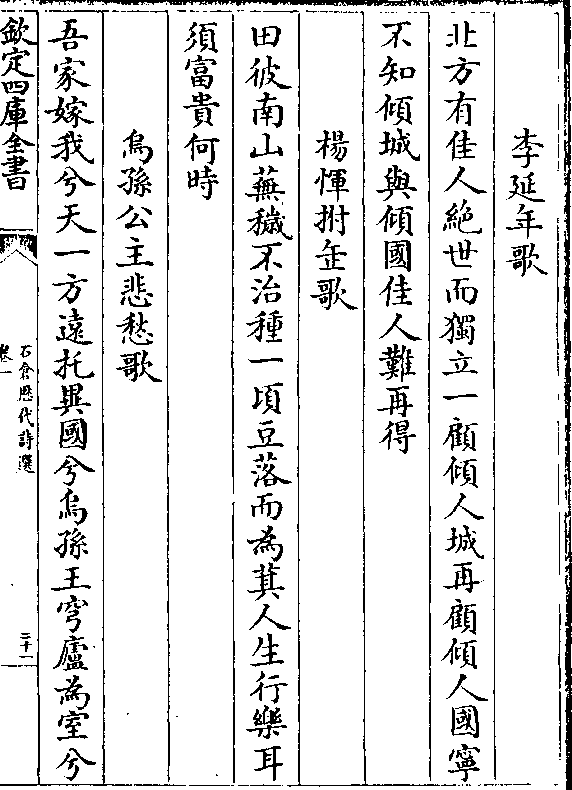 李延年歌
北方有佳人絶世而獨立一顧傾人城再顧傾人國寧
不知傾城與傾國佳人難再得
楊惲拊缶歌
田彼南山蕪穢不治種一頃豆落而為萁人生行樂耳
須富貴何時
烏孫公主悲愁歌
吾家嫁我兮天一方遠托異國兮烏孫王穹廬為室兮
欽定四庫全書
石倉歷代詩選
卷一
二十一